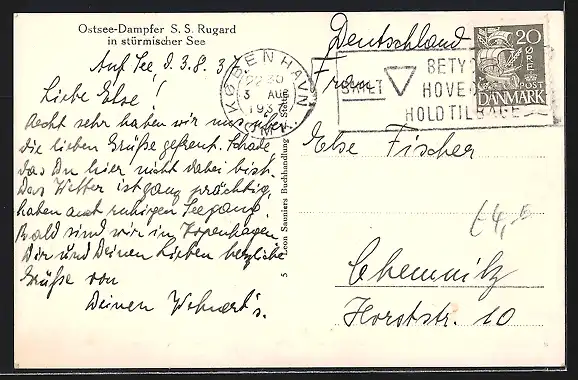 Ostsee-Dampfer S. S. Rugard
in stürmischer See
Auf See, d. 3. 8. 37
Liebe Else!
Recht sehr haben wir uns über
die lieben Grüße gefreut. Schade,
das Du hier nicht dabei bist.
Das Wetter ist ganz prächtig,
haben auch ruhigen Seegang.
Bald sind wir in Kopenhagen
Dir und Deinen Lieben herzliche
Grüße von
Deinen
5 Leon Sauniers Buchhandlung Stettin
KØBENHAVN
22 30
3 AUG
1937
OMV.
BETY
HOVE
HOLD TILBAGE
20
ØRE
POST
DANMARK
Deutschland
Frau
Else Fischer
Chemnitz
Horststr. 10